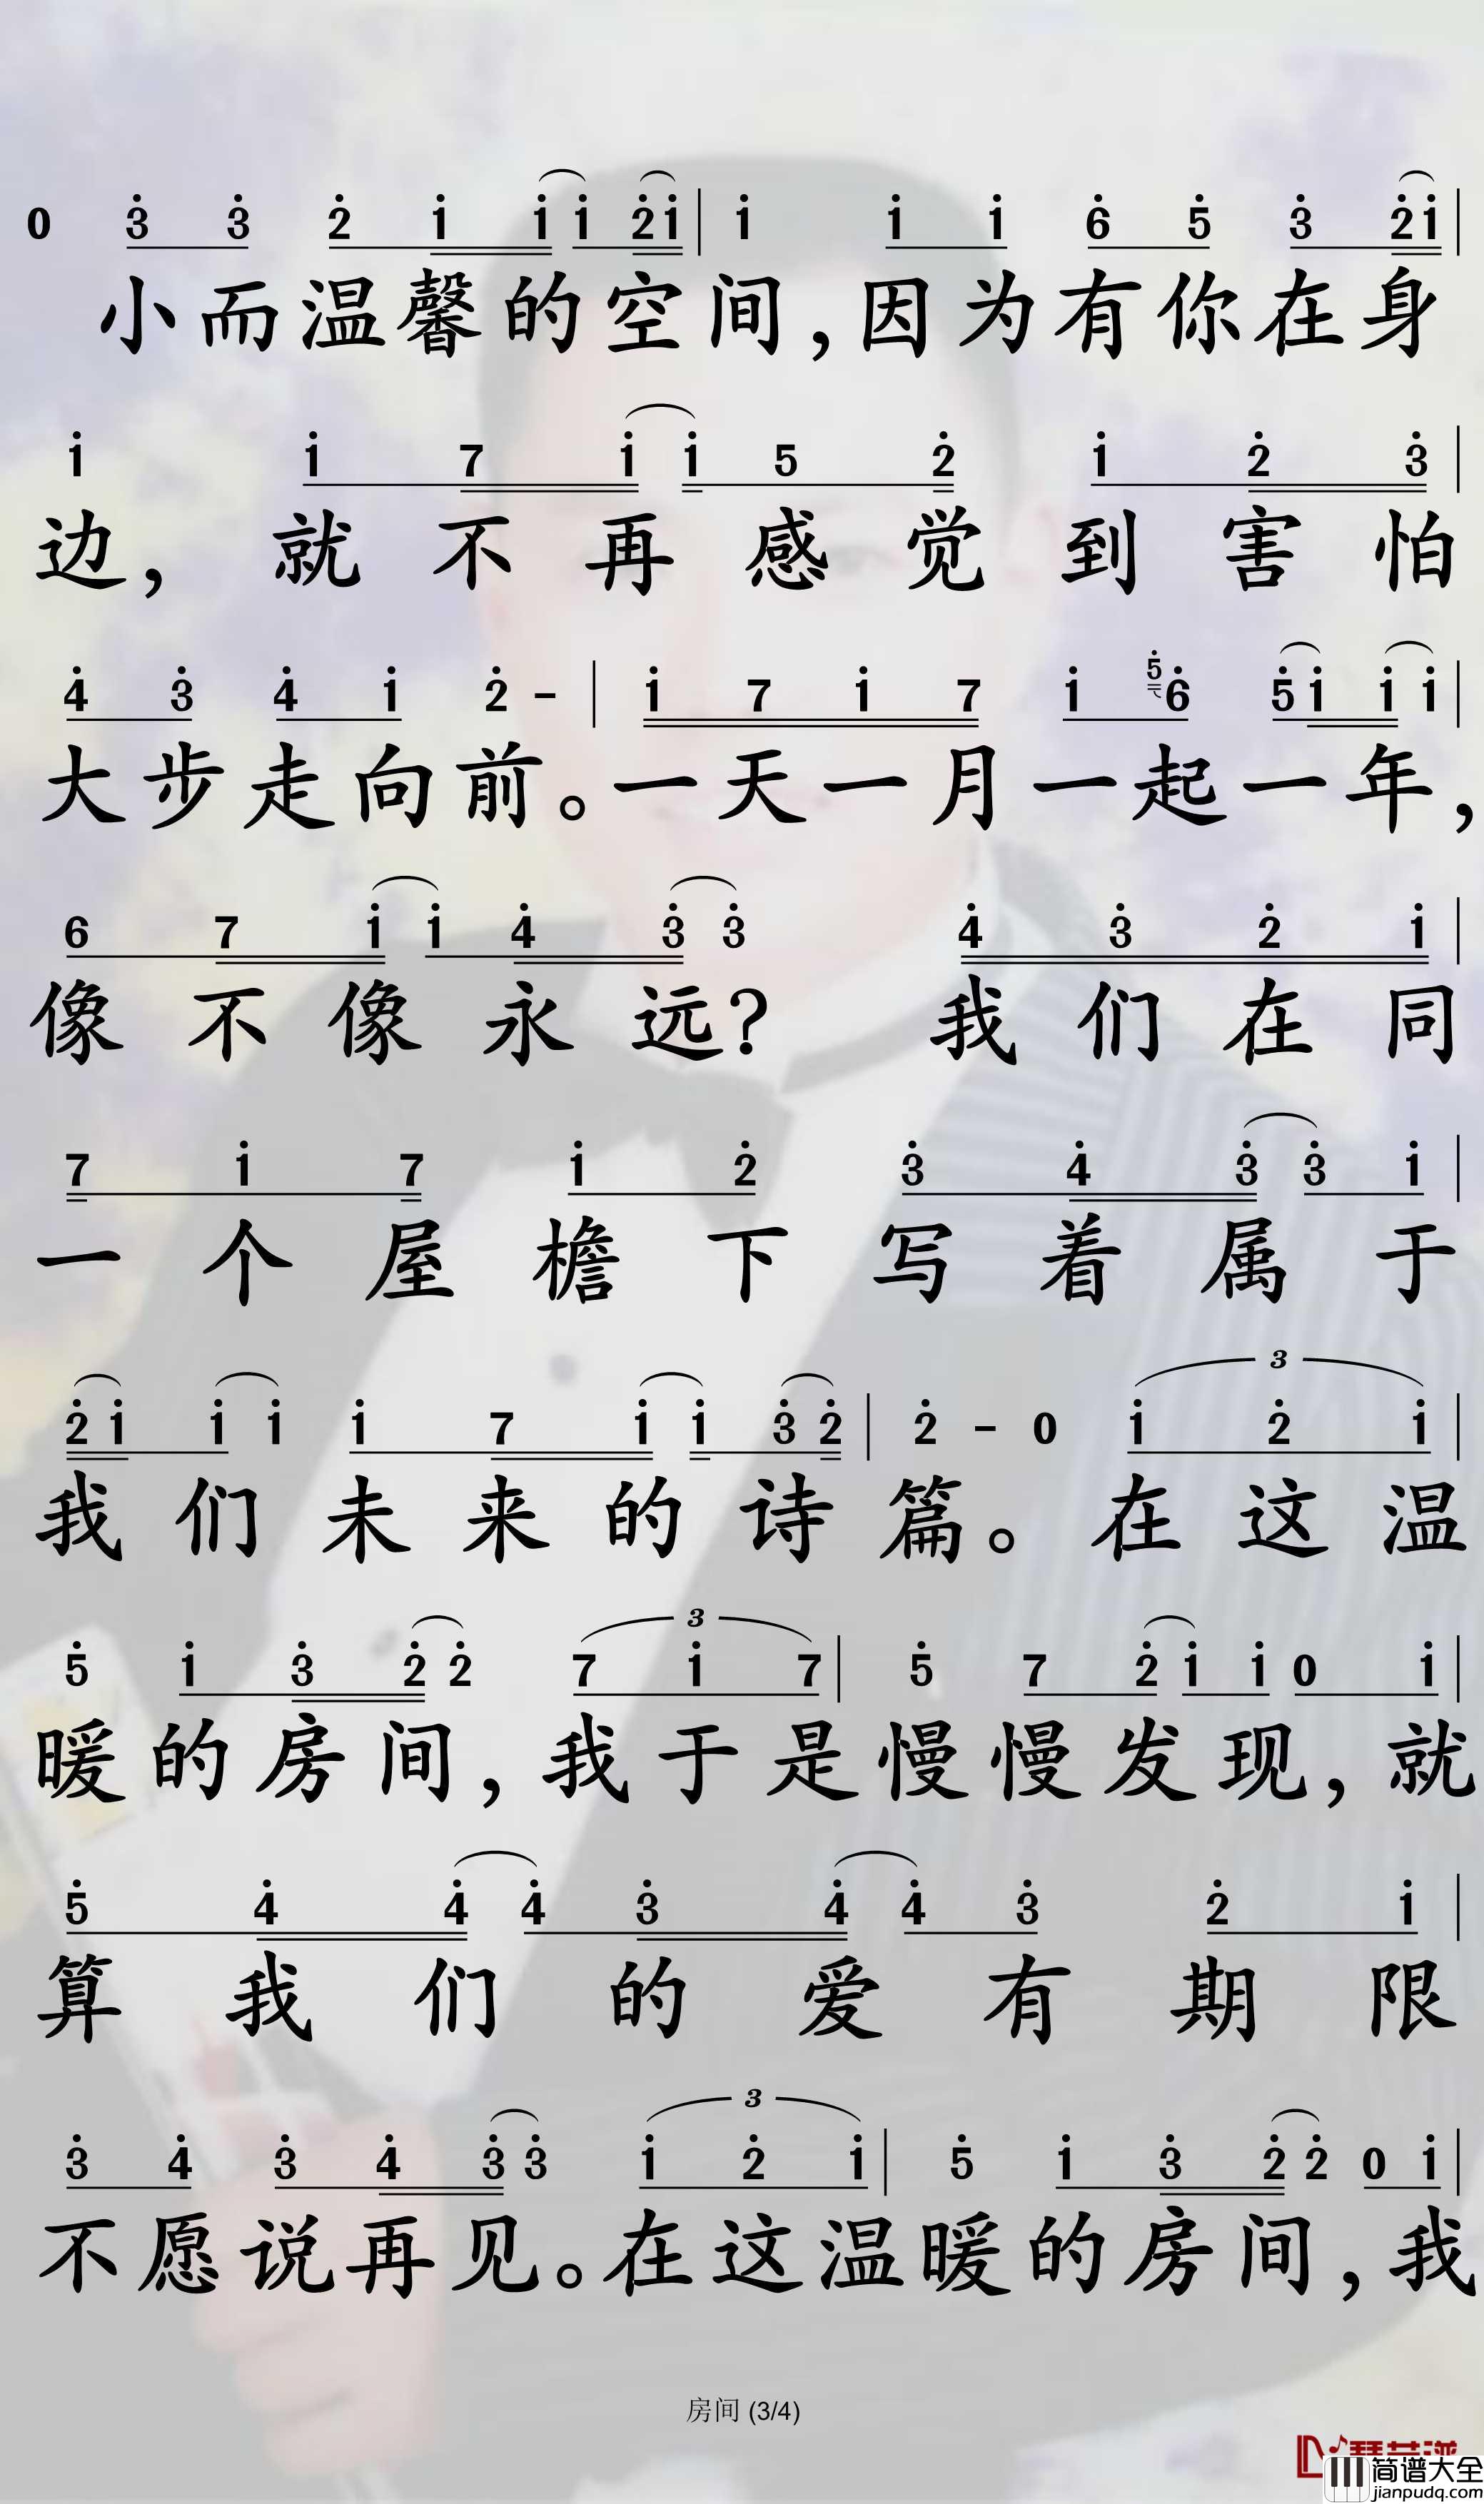 0 3 3 2 1 1 1 2 1 | 1 1 1 6 5 3 2 1 |
小而温馨的空间，因为有你在身
1 1 7 1 1 5 2 1 2 3 |
边，就不再感觉到害怕
4 3 4 1 2 - | 1 7 1 7 1 5 6 5 1 1 1 |
大步走向前。一天一月一起一年，
6 7 1 1 4 3 3 4 3 2 1 |
像不像永远？我们在同
7 1 7 1 2 3 4 3 3 1 |
一个屋檐下写着属于
3
2 1 1 1 1 7 1 1 3 2 | 2 - 0 1 2 1 |
我们未来的诗篇。在这温
3
5 1 3 2 2 7 1 7 | 5 7 2 1 1 0 1 |
暖的房间，我于是慢慢发现，就
5 4 4 4 3 4 4 3 2 1 |
算我们的爱有期限
3
3 4 3 4 3 3 1 2 1 | 5 1 3 2 2 0 1 |
不愿说再见。在这温暖的房间，我
房间 (3/4)
简谱大全
jianpudq.com